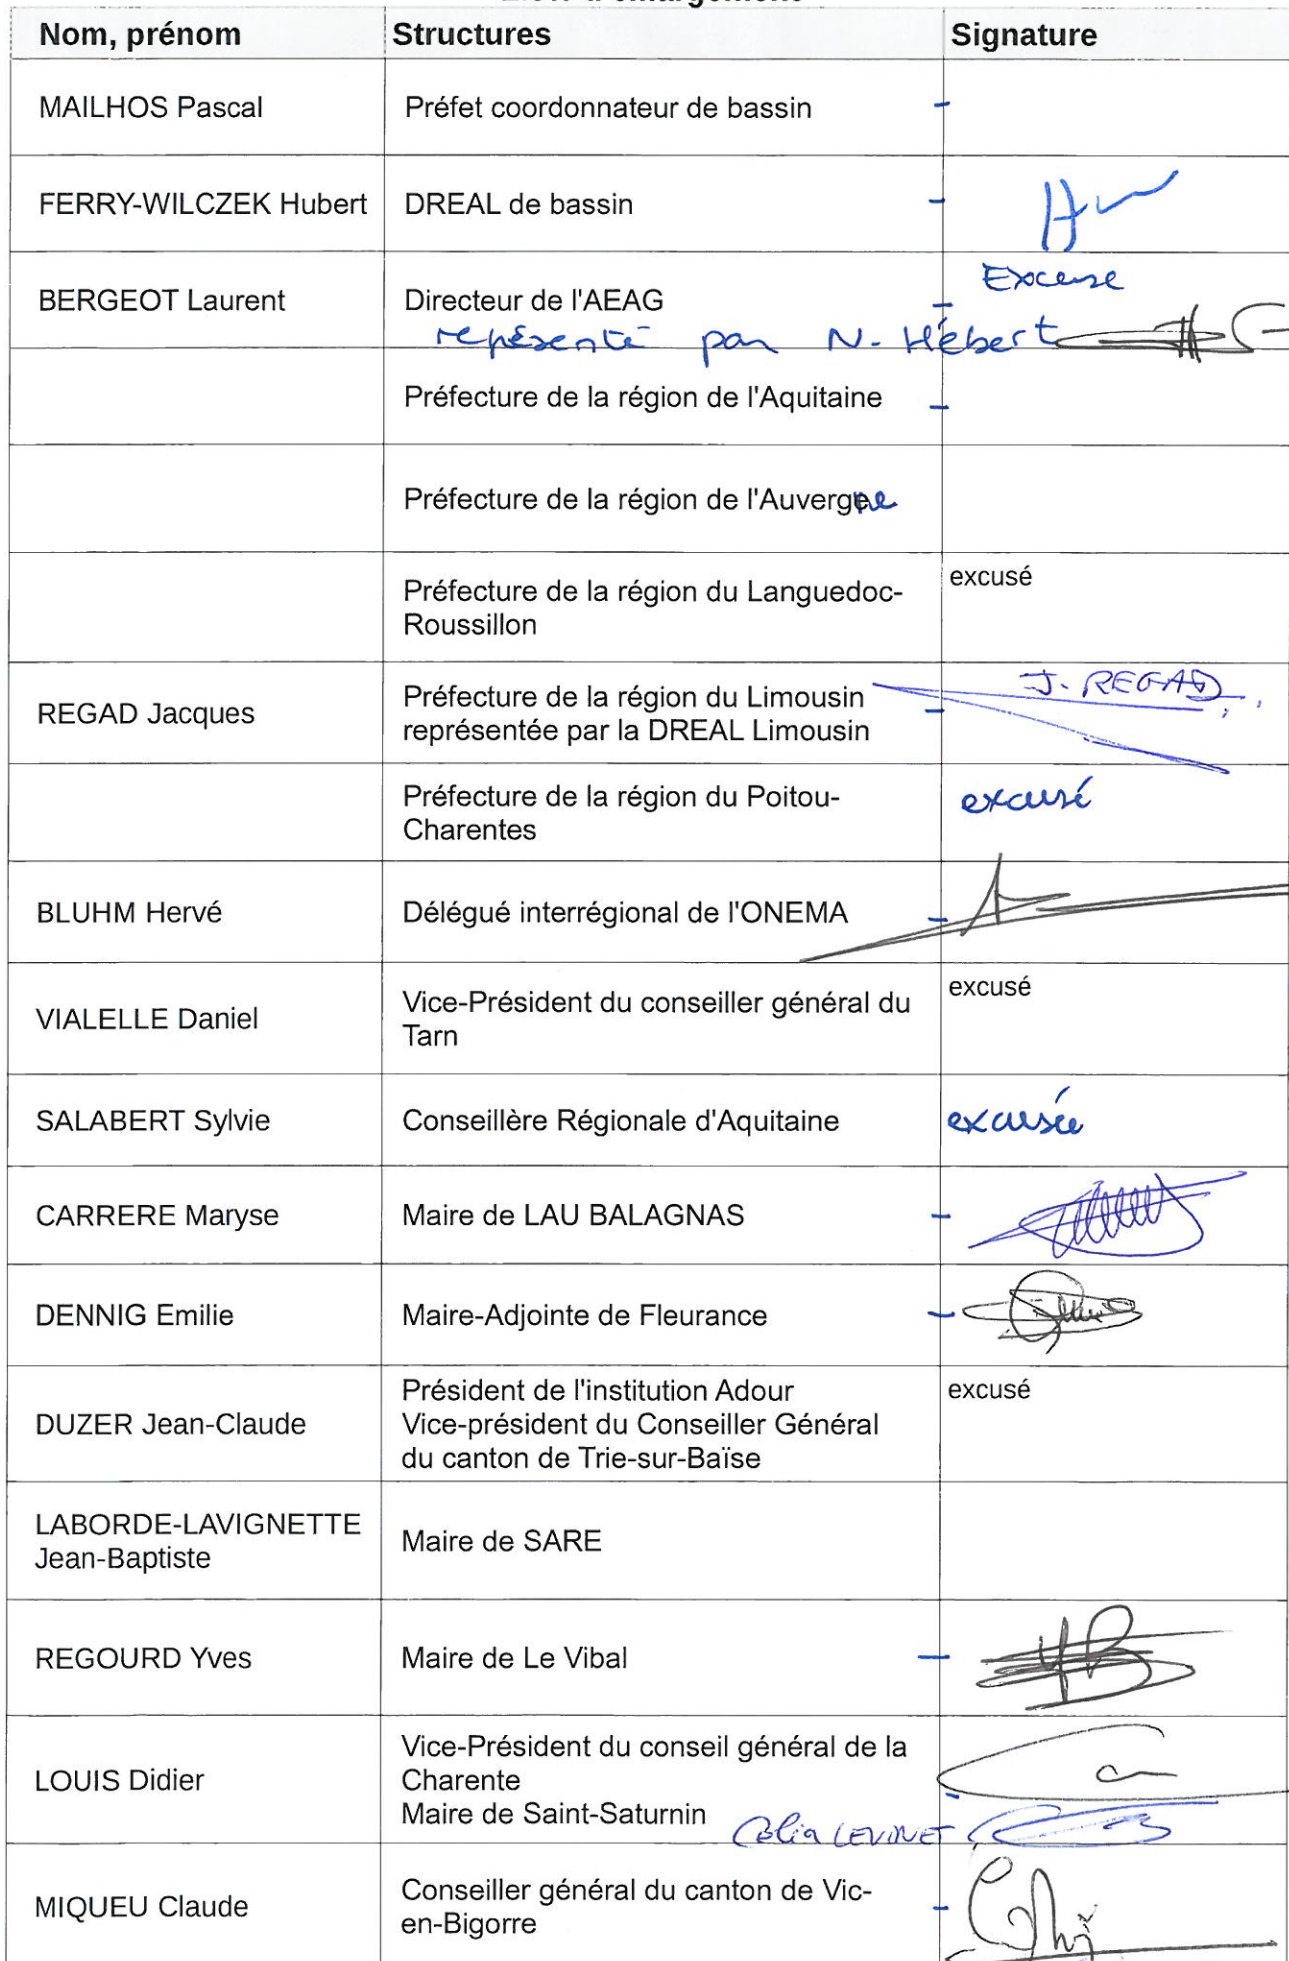 Nom, prénom Structures Signature
MAILHOS Pascal Préfet coordonnateur de bassin
FERRY-WILCZEK Hubert DREAL de bassin
Excuse
BERGEOT Laurent Directeur de l'AEAG
représenté par N. Hébert
Préfecture de la région de l'Aquitaine
Préfecture de la région de l'Auvergne
excusé
Préfecture de la région du Languedoc-
Roussillon
J. REGAD
REGAD Jacques Préfecture de la région du Limousin
représentée par la DREAL Limousin
Préfecture de la région du Poitou- excusé
Charentes
BLUHM Hervé Délégué interrégional de l'ONEMA
excusé
VIALELLE Daniel Vice-Président du conseiller général du
Tarn
SALABERT Sylvie Conseillère Régionale d'Aquitaine excusée
CARRERE Maryse Maire de LAU BALAGNAS
DENNIG Emilie Maire-Adjointe de Fleurance
Président de l'institution Adour excusé
DUZER Jean-Claude Vice-président du Conseiller Général
du canton de Trie-sur-Baïse
LABORDE-LAVIGNETTE
Jean-Baptiste Maire de SARE
REGOURD Yves Maire de Le Vibal
Vice-Président du conseil général de la
LOUIS Didier Charente
Maire de Saint-Saturnin
Célia LEVINET
MIQUEU Claude Conseiller général du canton de Vic-
en-Bigorre